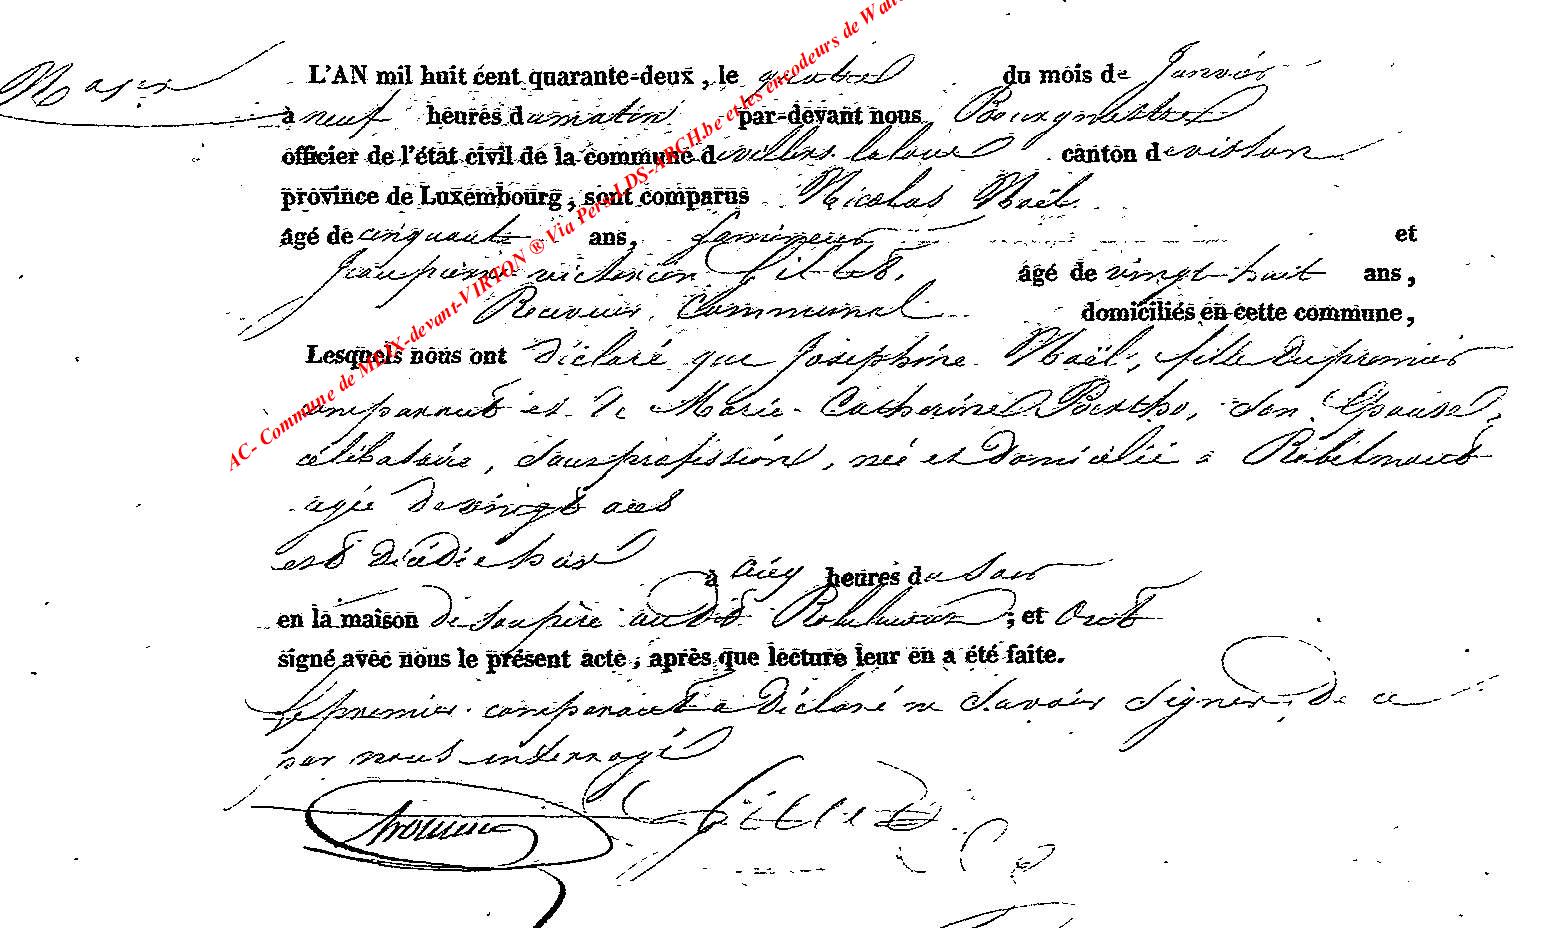 L'AN mil huit cent quarante-deux, le quatre du mois de Janvier
à neuf heures du matin par-devant nous Bourgmestre
officier de l'état civil de la commune de villers laloue canton de virton
province de Luxembourg, sont comparus Nicolas Noël
âgé de cinquante ans, et
Jean pierre victorien Gillet, âgé de vingt-huit ans,
Receveur Communal domiciliés en cette commune,
Lesquels nous ont déclaré que Joséphine Noël, fille du premier
comparant et de Marie-Catherine Berthe, son Epouse,
célibataire, sans profession, née et domiciliée à Robelmont
agée de vingt ans
est décédée hier
à cinq heures du soir
en la maison de son père audit Robelmont ; et ont
signé avec nous le présent acte, après que lecture leur en a été faite.
Le premier comparant a déclaré ne savoir signer, de ce
par nous interrogé
Gillet
AC- Commune de MEIX-devant-VIRTON ® Via Pers LDS-ARCH.be et les encodeurs de